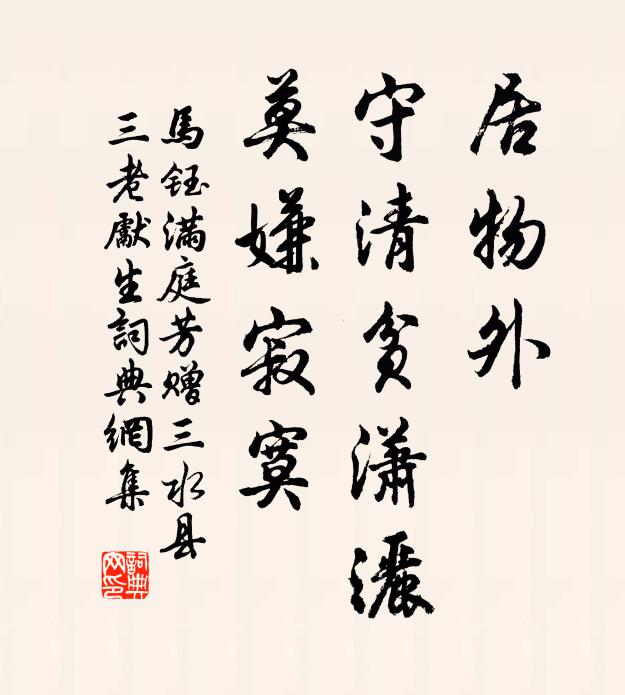 居物外
守清貧瀟灑
莫嫌寂寞
馬鈺满庭芳赠三水县
三老獻生詞典網集
詞典
网印